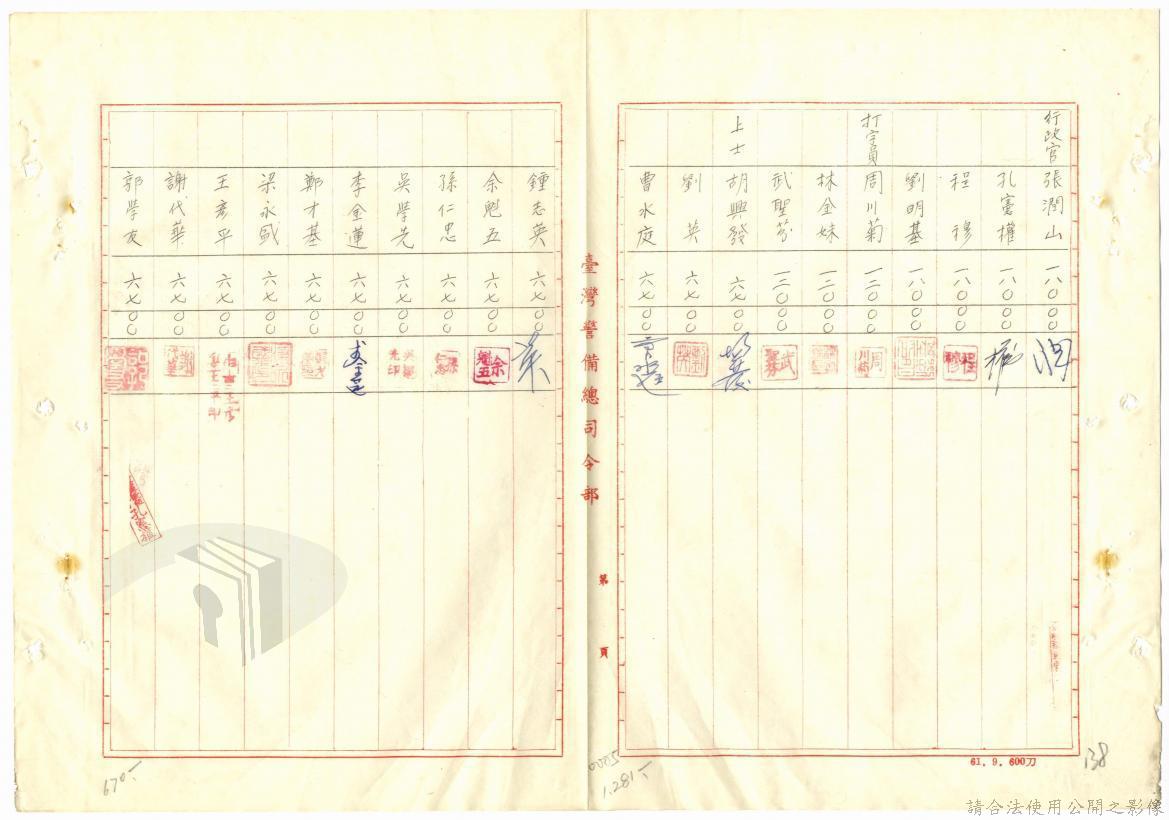 行政官 張潤山 一八〇〇〇
孔憲權 一八〇〇〇
程穆 一八〇〇〇
劉明基 一八〇〇〇
打字員 周川菊 一二〇〇〇
林金妹 一二〇〇〇
武聖芬 一二〇〇〇
上士 胡興發 六七〇〇
劉英 六七〇〇
曹水庭 六七〇〇
61. 9. 600刀
138
臺灣警備總司令部
第 頁
0085
1.281
鍾志英 六七〇〇
余魁五 六七〇〇
孫仁忠 六七〇〇
吳學先 六七〇〇
李金蓮 六七〇〇
鄭才基 六七〇〇
梁永盛 六七〇〇
王彥平 六七〇〇
謝代華 六七〇〇
郭學友 六七〇〇
670
請合法使用公開之影像